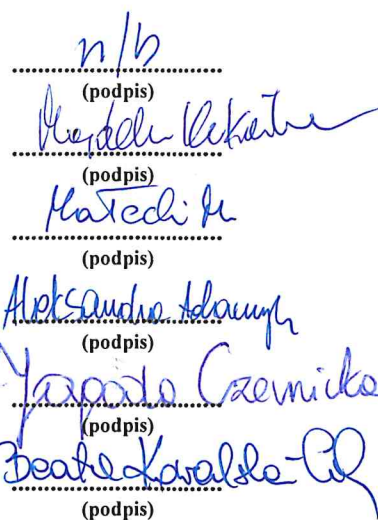 n/b
(podpis)
Magdalena
(podpis)
Małecki M
(podpis)
Aleksandra Adamczyk
(podpis)
Jagoda Czernicka
(podpis)
Beata Kowalska-
(podpis)